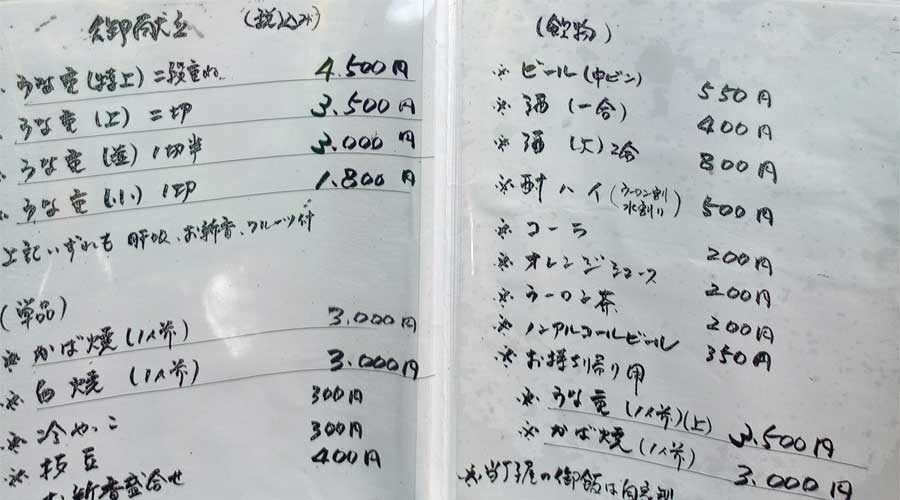 御献立 (税込み)
うな重(特上)二段重ね 4.500円
うな重(上)二切 3.500円
うな重(並)1切半 3.000円
うな重(小)1切 1.800円
上記いずれも 肝吸、お新香、フルーツ付
(単品)
※ かば焼(1人前) 3.000円
※ 白焼(1人前) 3.000円
※ 冷やっこ 300円
※ 枝豆 300円
お新香盛合せ 400円
(飲物)
※ ビール(中ビン) 550円
※ 酒(一合) 400円
※ 酒(大)2合 800円
※ 酎ハイ(ウーロン割 水割り) 500円
※ コーラ 200円
※ オレンジジュース 200円
※ ウーロン茶 200円
※ ノンアルコールビール 350円
※ お持ち帰り用
※ うな重(1人前)(上) 3.500円
※ かば焼(1人前) 3.000円
※当丁屋の御飯は